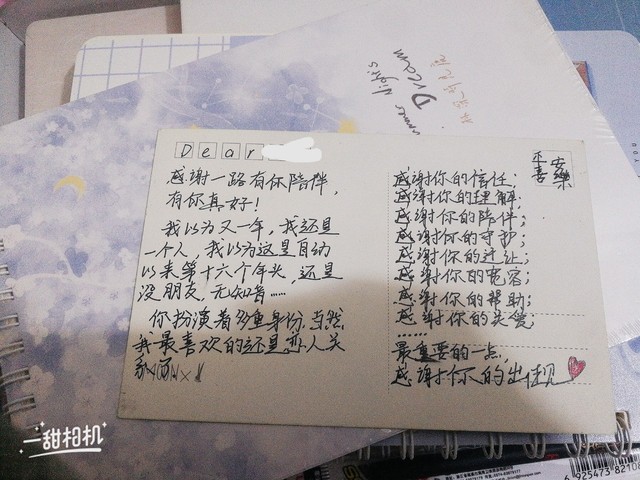 Dream
Dear
感谢一路有你陪伴,
有你真好!
我以为又一年,我还是
一个人,我以为这是自动
以来第十六个年头,还是
没朋友,无知音……
你扮演着多重身份,当然
我最喜欢的还是恋人关
平安
喜樂
感谢你的信任;
感谢你的理解;
感谢你的陪伴;
感谢你的守护;
感谢你的迁让;
感谢你的宽容;
感谢你的帮助;
感谢你的关爱;
……
最重要的一点,
感谢你的出现
一甜相机
6 925473 82108